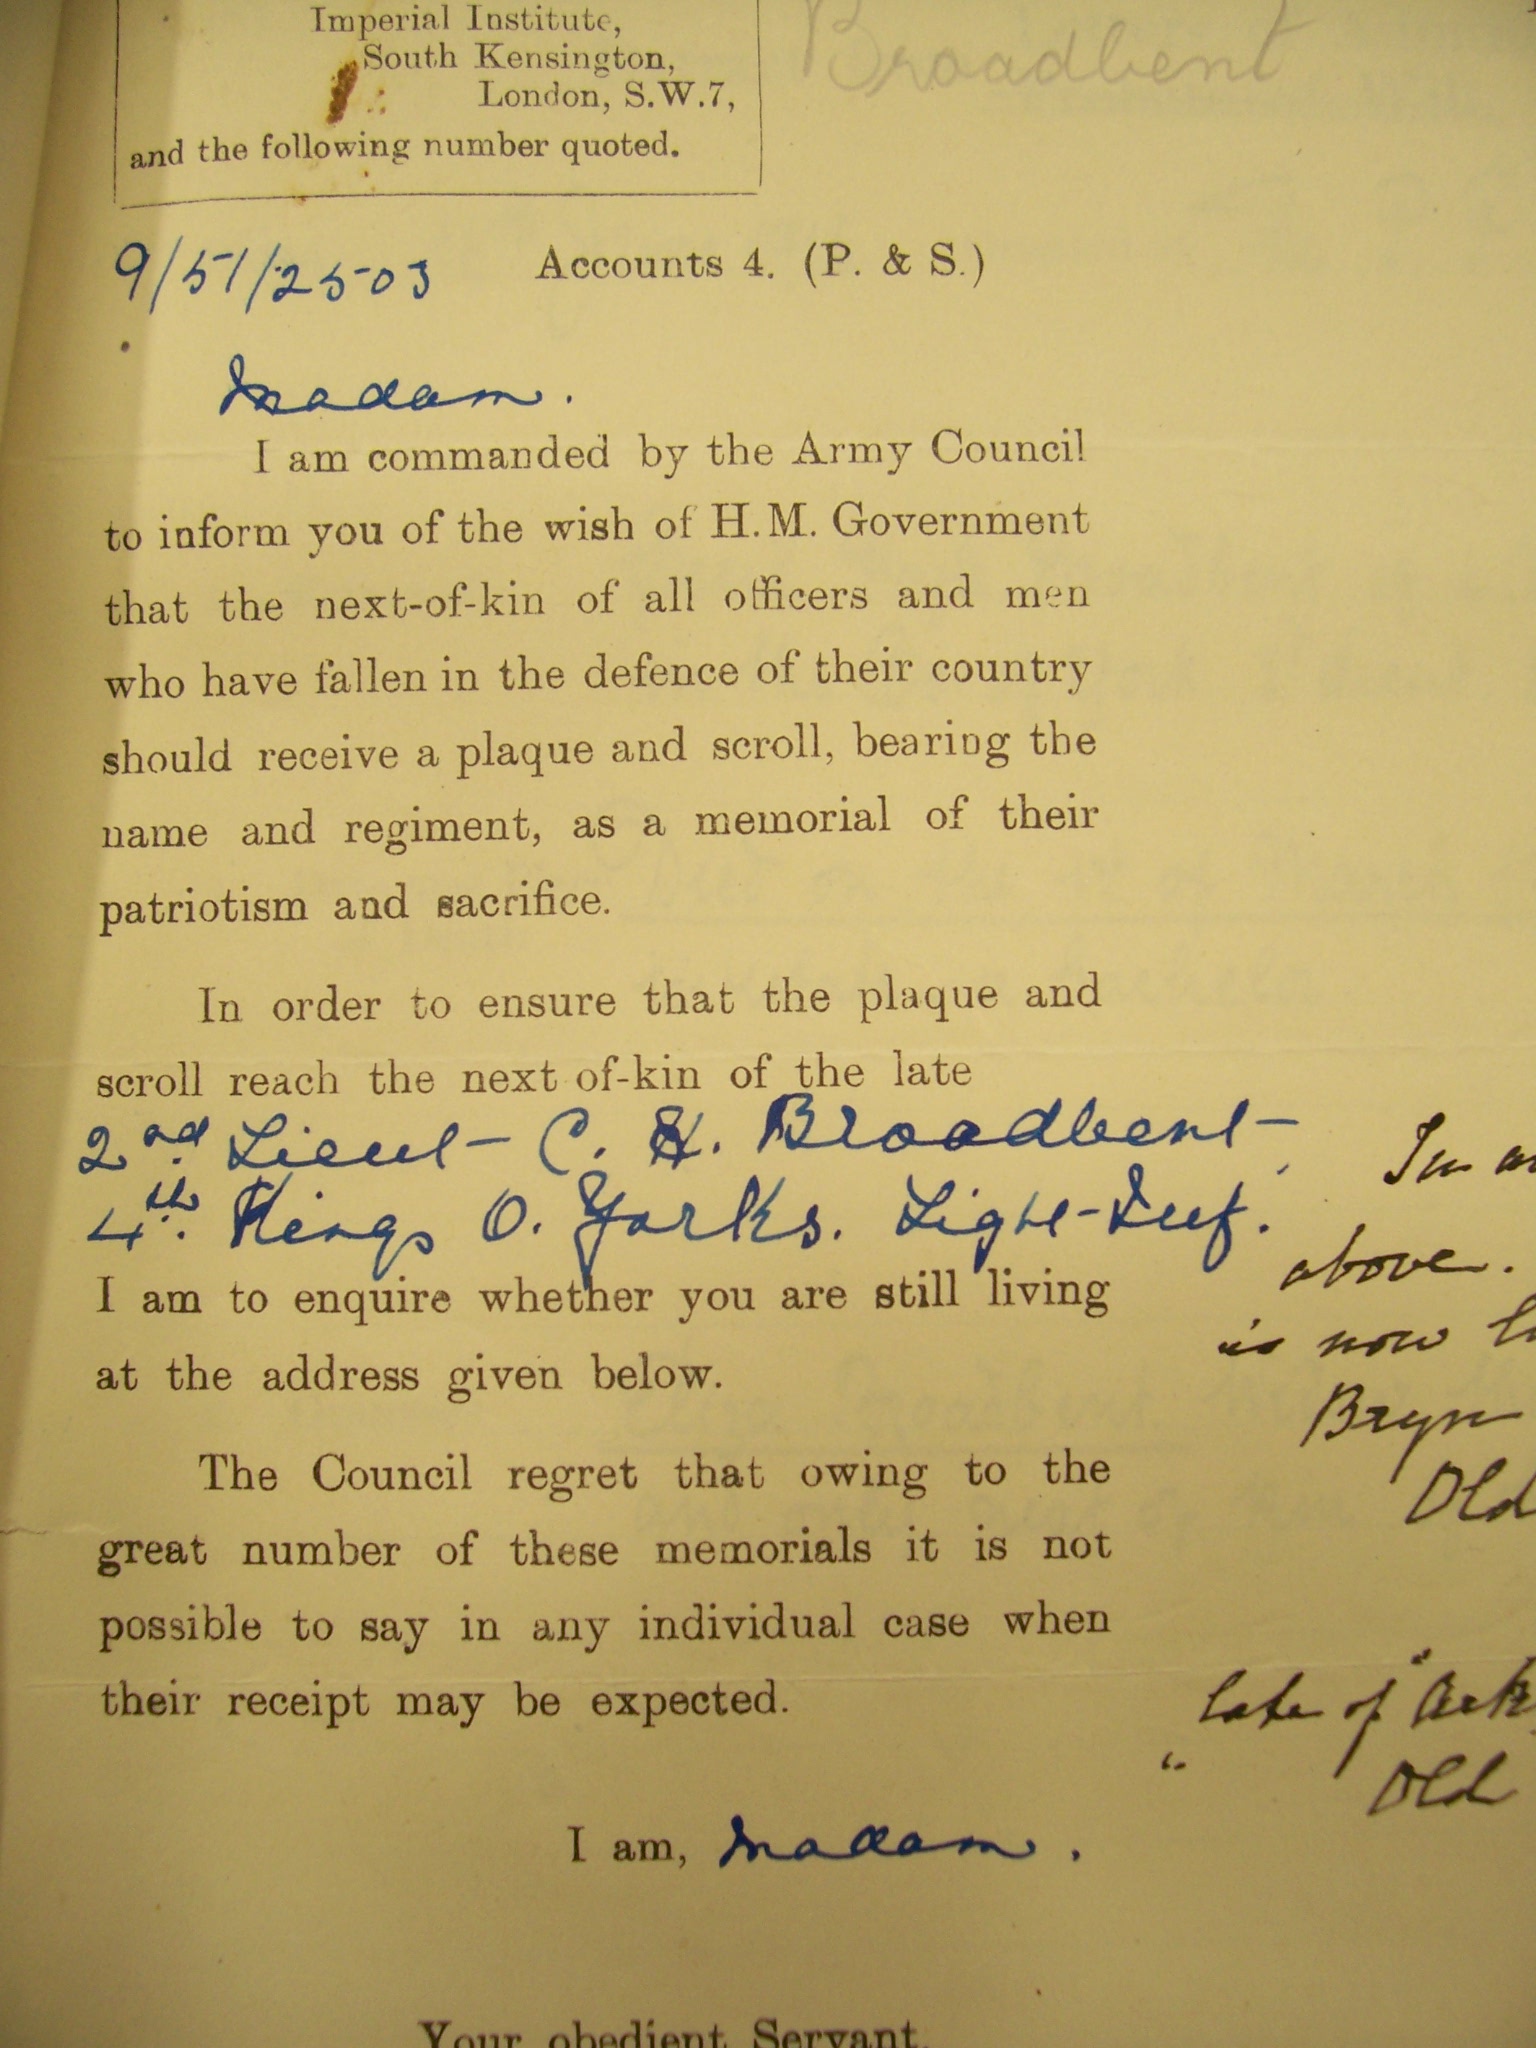 Imperial Institute,
South Kensington,
London, S.W.7,
and the following number quoted.
Broadbent
9/51/2503 Accounts 4. (P. & S.)
Madam.
I am commanded by the Army Council
to inform you of the wish of H.M. Government
that the next-of-kin of all officers and men
who have fallen in the defence of their country
should receive a plaque and scroll, bearing the
name and regiment, as a memorial of their
patriotism and sacrifice.
In order to ensure that the plaque and
scroll reach the next of-kin of the late
2nd. Lieut- C. H. Broadbent-
4th. Kings O. Yorks. Light-Inf.
I am to enquire whether you are still living
at the address given below.
The Council regret that owing to the
great number of these memorials it is not
possible to say in any individual case when
their receipt may be expected.
I am, Madam.
Your obedient Servant,
above.
is now
Bryn
Old
late of
" Old